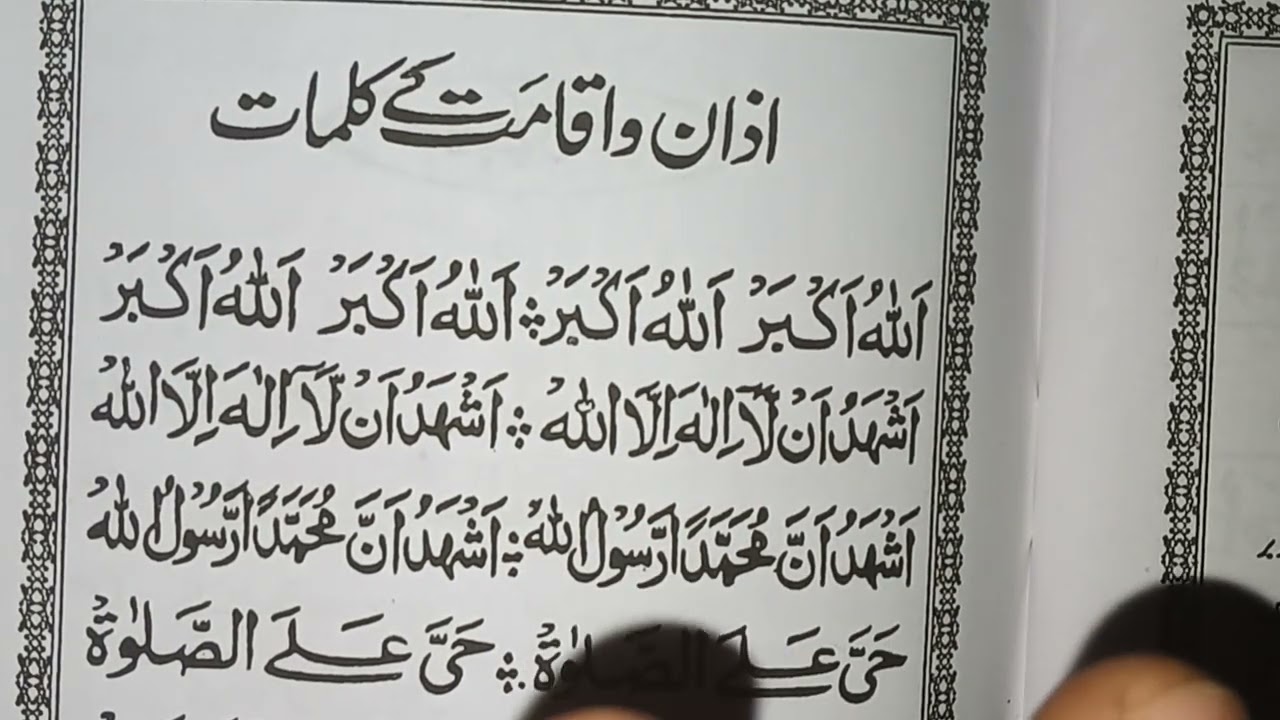 اذان واقامَت کے کلمات
اَللّٰهُ اَکْبَرْ اَللّٰهُ اَکْبَرْ ۞ اَللّٰهُ اَکْبَرْ اَللّٰهُ اَکْبَرْ
اَشْهَدُ اَنْ لَّآ اِلٰهَ اِلَّا اللّٰهُ ۞ اَشْهَدُ اَنْ لَّآ اِلٰهَ اِلَّا اللّٰهُ
اَشْهَدُ اَنَّ مُحَمَّدًا رَّسُوْلُ اللّٰهِ ۞ اَشْهَدُ اَنَّ مُحَمَّدًا رَّسُوْلُ اللّٰهِ
حَیَّ عَلَے الصَّلٰوةْ ۞ حَیَّ عَلَے الصَّلٰوةْ